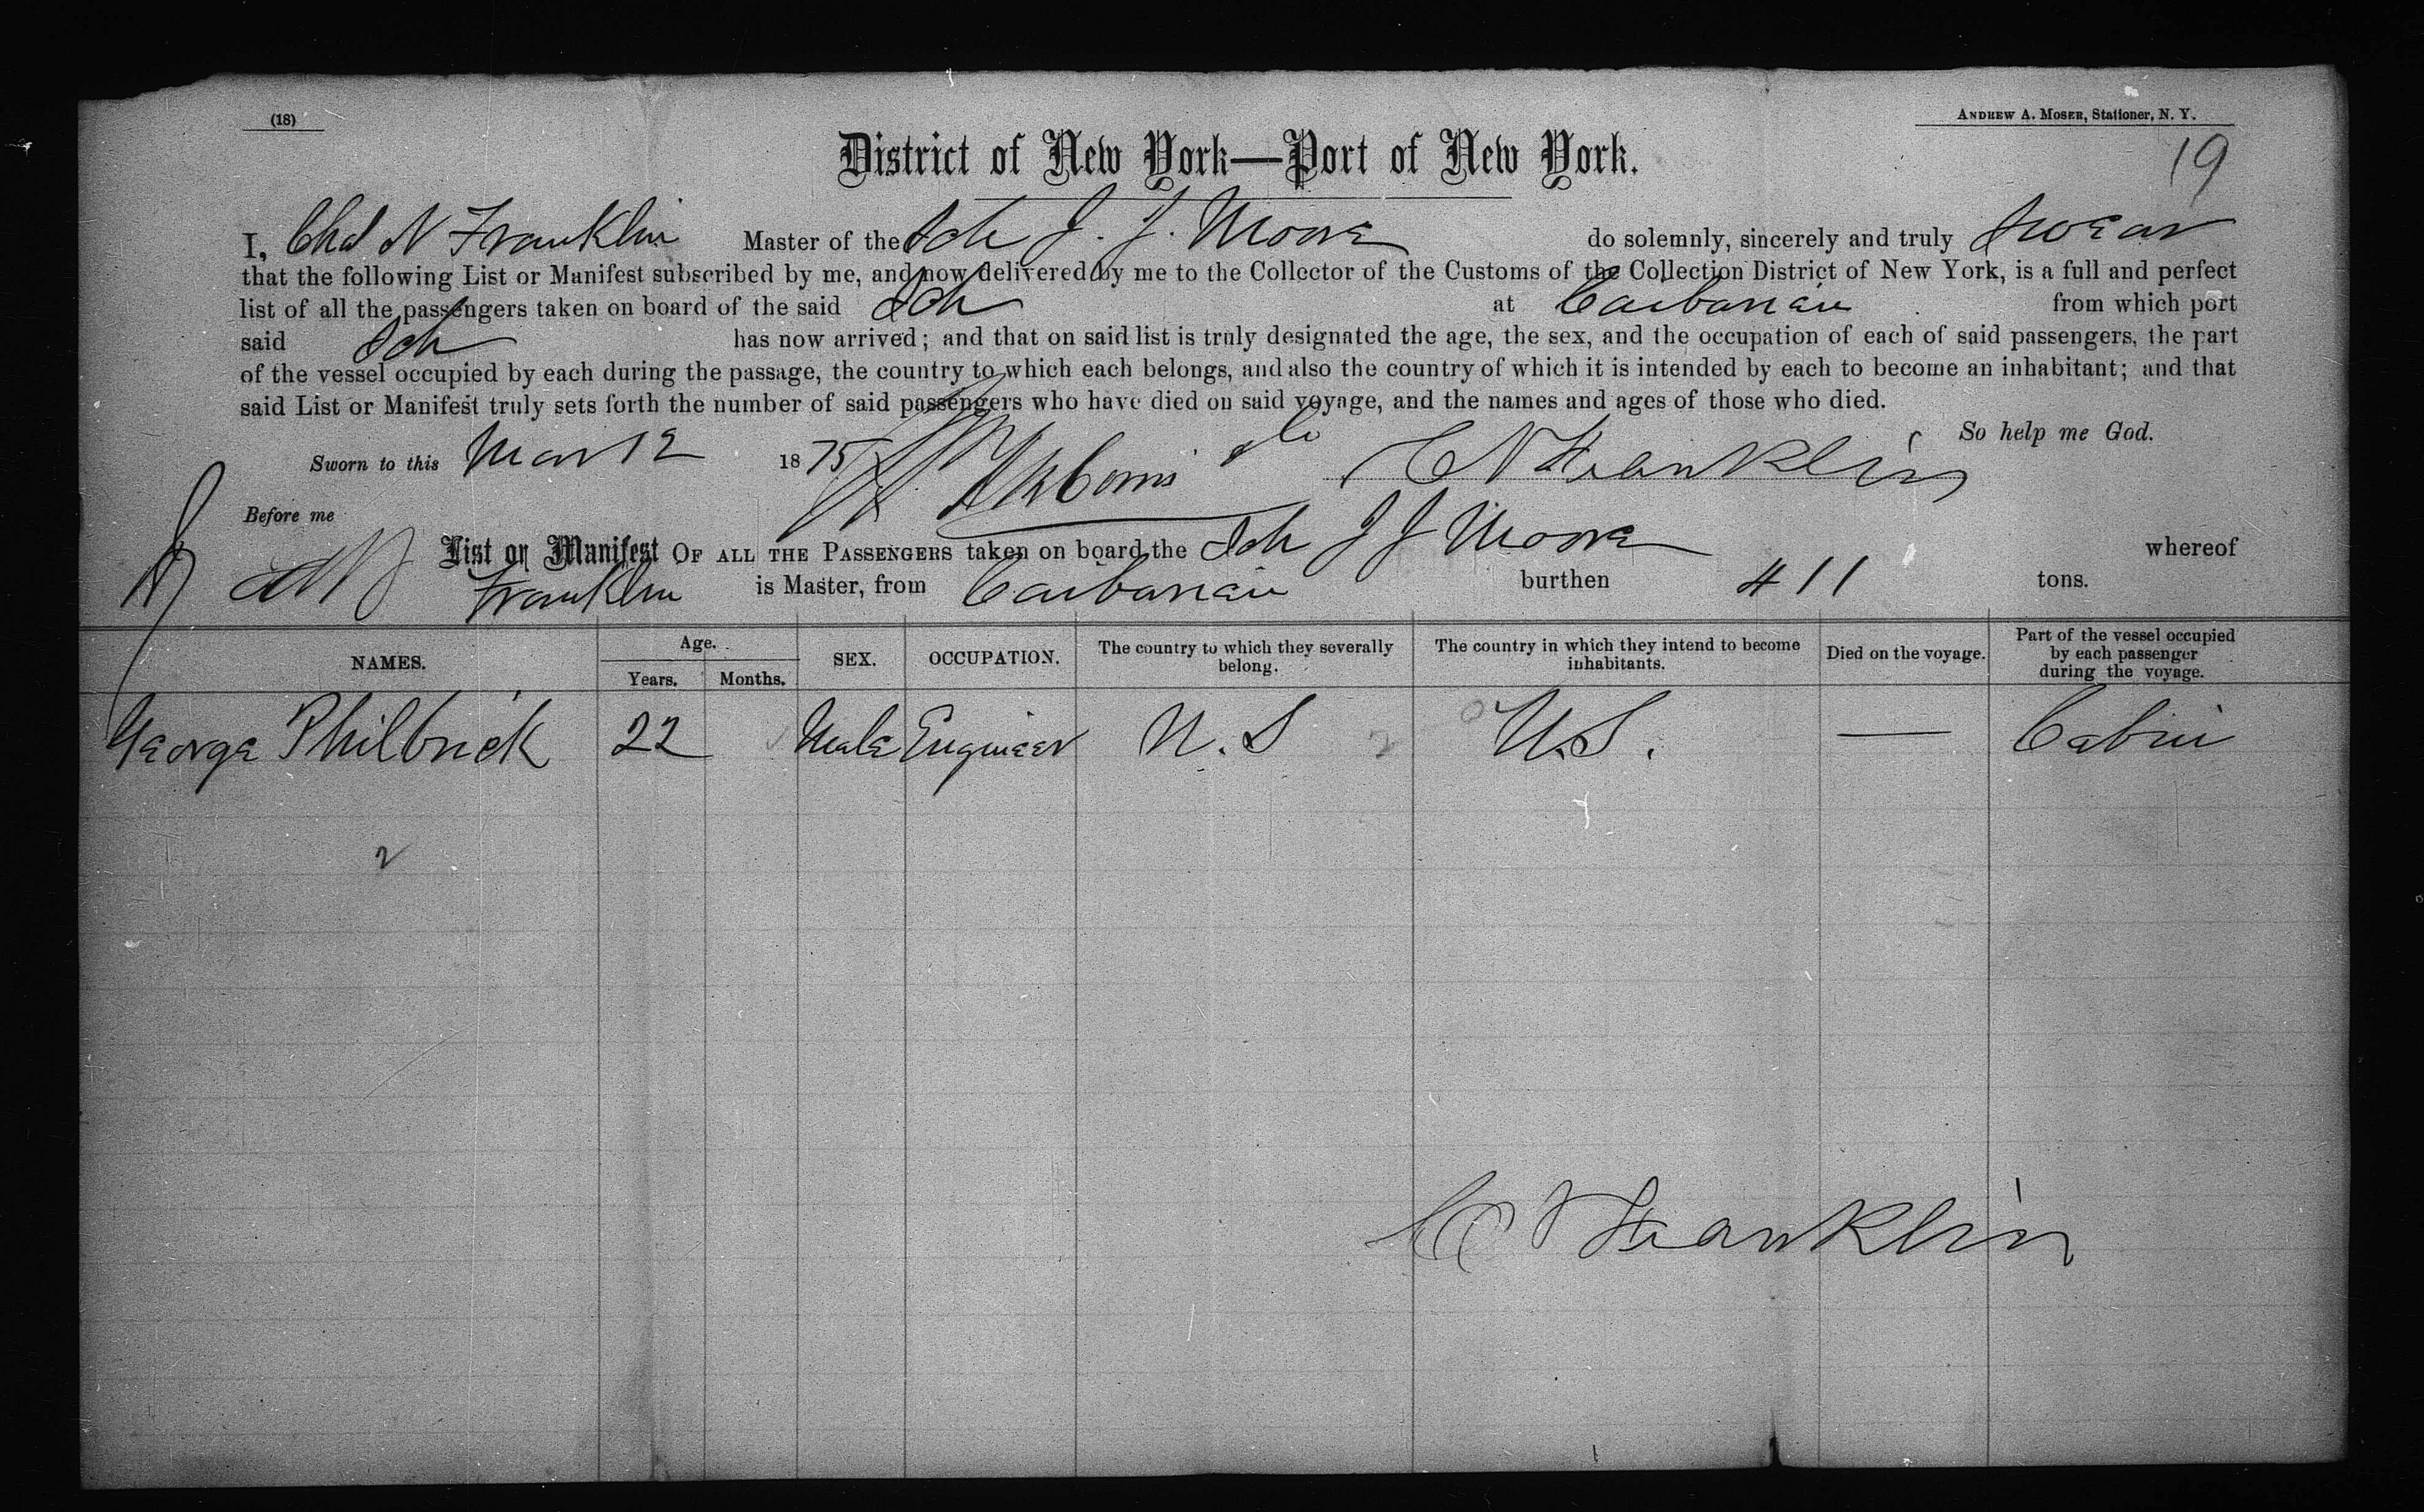 (18)
ANDREW A. MOSER, Stationer, N. Y.
19
District of New York—Port of New York.
I, Chas N Franklin Master of the Sch J. J. Moore do solemnly, sincerely and truly swear
that the following List or Manifest subscribed by me, and now delivered by me to the Collector of the Customs of the Collection District of New York, is a full and perfect
list of all the passengers taken on board of the said Sch at Caibarien from which port
said Sch has now arrived; and that on said list is truly designated the age, the sex, and the occupation of each of said passengers, the part
of the vessel occupied by each during the passage, the country to which each belongs, and also the country of which it is intended by each to become an inhabitant; and that
said List or Manifest truly sets forth the number of said passengers who have died on said voyage, and the names and ages of those who died.
So help me God.
Sworn to this Mar 12 1875 C N Franklin
Before me
List or Manifest OF ALL THE PASSENGERS taken on board the Sch J J Moore whereof
Franklin is Master, from Caibarien burthen 411 tons.
NAMES. Age. Years. Months. SEX. OCCUPATION. The country to which they severally belong. The country in which they intend to become inhabitants. Died on the voyage. Part of the vessel occupied by each passenger during the voyage.
George Philbrick 22 Male Engineer U. S 2 U.S. — Cabin
2
C N Franklin